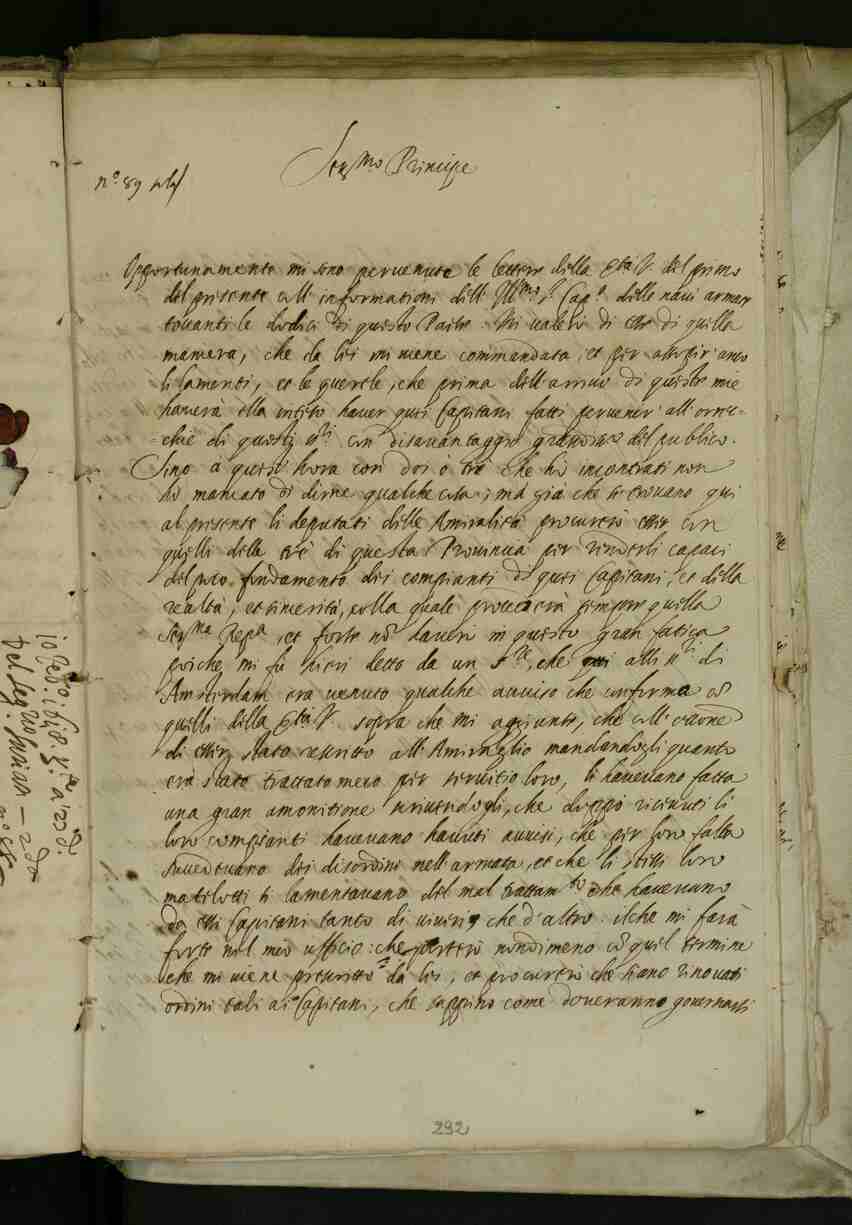 Ser.mo Principe
n.o 89
Opportunamente mi sono pervenute le lettere della Ser.tà V. del primo
del presente coll' informationi dell' Ill.mo s.r Cap.o delle navi armate
toccanti le dodici di questo Paese. Mi valerò di esse di quella
maniera, che da lei mi viene commandata, et per assopir anco
li lamenti, et le querele, che prima dell' arrivo di queste mie
haverà ella inteso haver questi Capitani fatti pervenir all' orec-
chie di questi ss.ri con disavantaggio grande del publico.
Sino a quest' hora con doi ò tre che hò incontrati non
hò mancato di dirne qualche cosa; mà già che si trovano qui
al presente li deputati delle Amiralità procurerò esser con
quelli delle trè di questa Provincia per renderli capaci
del poco fondamento dei compianti di questi Capitani, et della
realtà, et sincerità, colla quale procederà sempre quella
Ser.ma Rep.ca, et forse nō haverò in questo gran fatica
poiche mi fù hieri detto da un s.re, che alli ss.ri di
Amsterdam era venuto qualche avviso che conforma cō
quelli della Ser.tà V. sopra che mi aggiunse, che coll' occasione
di esser stato rescritto all' Amiraglio mandandogli quanto
era stato trattato meco per servitio loro, li havevano fatta
una gran amonitione scrivendogli, che doppo ricevuti li
loro compianti havevano havuti avvisi, che per loro fallo
succedevano dei disordini nell' armata, et che li stessi loro
mariscotti si lamentavano del mal trattam.to che havevano
da essi Capitani tanto di viveri che d' altro: ilche mi farà
forte nel mio ufficio: che porterò nondimeno cō quel termine
che mi viene prescritto da lei, et procurerò che siano rinovati
ordini tali ai Capitani, che sappino come doveranno governarsi
292